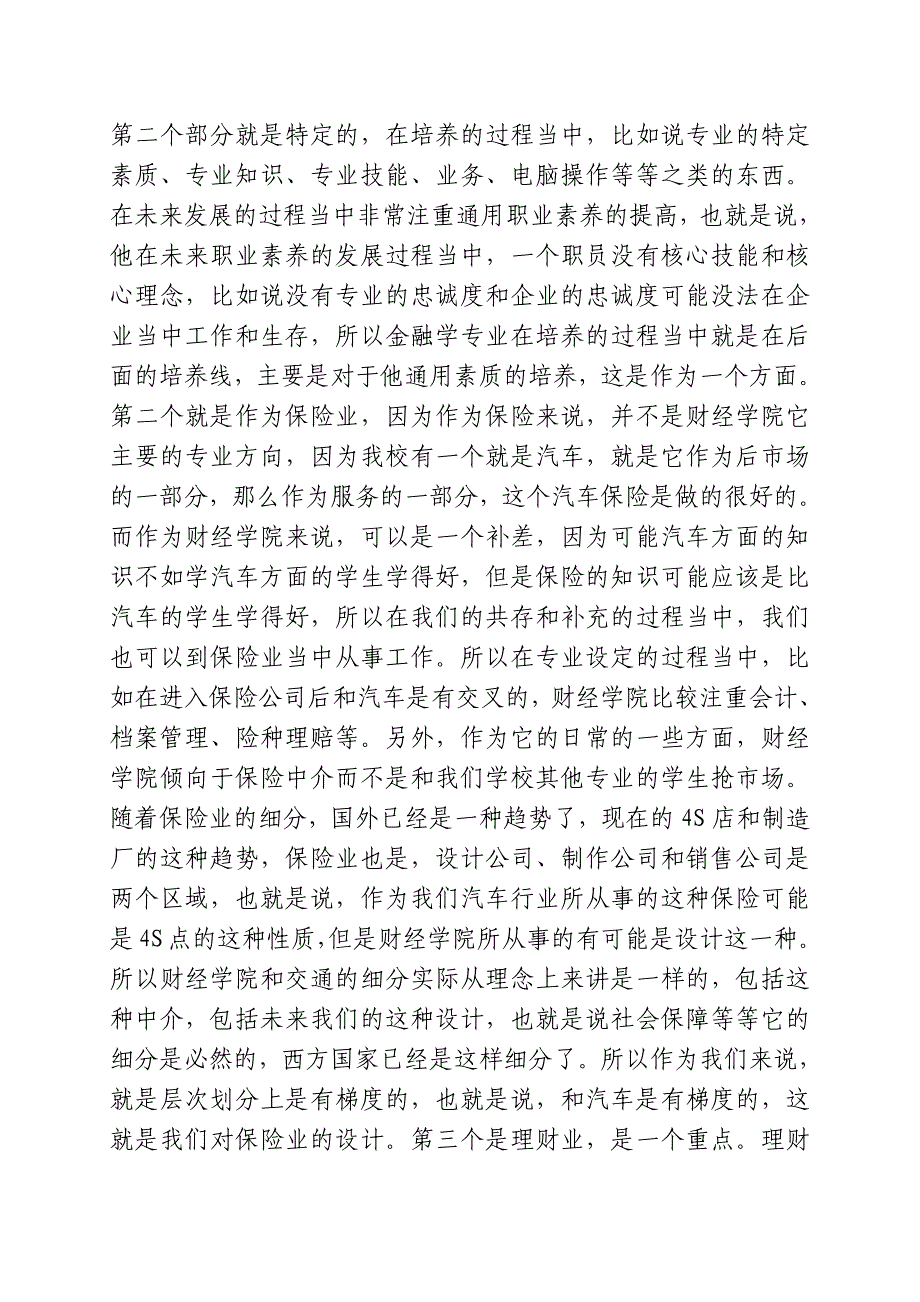 第二个部分就是特定的，在培养的过程当中，比如说专业的特定
素质、专业知识、专业技能、业务、电脑操作等等之类的东西。
在未来发展的过程当中非常注重通用职业素养的提高，也就是说，
他在未来职业素养的发展过程当中，一个职员没有核心技能和核
心理念，比如说没有专业的忠诚度和企业的忠诚度可能没法在企
业当中工作和生存，所以金融学专业在培养的过程当中就是在后
面的培养线，主要是对于他通用素质的培养，这是作为一个方面。
第二个就是作为保险业，因为作为保险来说，并不是财经学院它
主要的专业方向，因为我校有一个就是汽车，就是它作为后市场
的一部分，那么作为服务的一部分，这个汽车保险是做的很好的。
而作为财经学院来说，可以是一个补差，因为可能汽车方面的知
识不如学汽车方面的学生学得好，但是保险的知识可能应该是比
汽车的学生学得好，所以在我们的共存和补充的过程当中，我们
也可以到保险业当中从事工作。所以在专业设定的过程当中，比
如在进入保险公司后和汽车是有交叉的，财经学院比较注重会计、
档案管理、险种理赔等。另外，作为它的日常的一些方面，财经
学院倾向于保险中介而不是和我们学校其他专业的学生抢市场。
随着保险业的细分，国外已经是一种趋势了，现在的 4S 店和制造
厂的这种趋势，保险业也是，设计公司、制作公司和销售公司是
两个区域，也就是说，作为我们汽车行业所从事的这种保险可能
是 4S 点的这种性质，但是财经学院所从事的有可能是设计这一种。
所以财经学院和交通的细分实际从理念上来讲是一样的，包括这
种中介，包括未来我们的这种设计，也就是说社会保障等等它的
细分是必然的，西方国家已经是这样细分了。所以作为我们来说，
就是层次划分上是有梯度的，也就是说，和汽车是有梯度的，这
就是我们对保险业的设计。第三个是理财业，是一个重点。理财